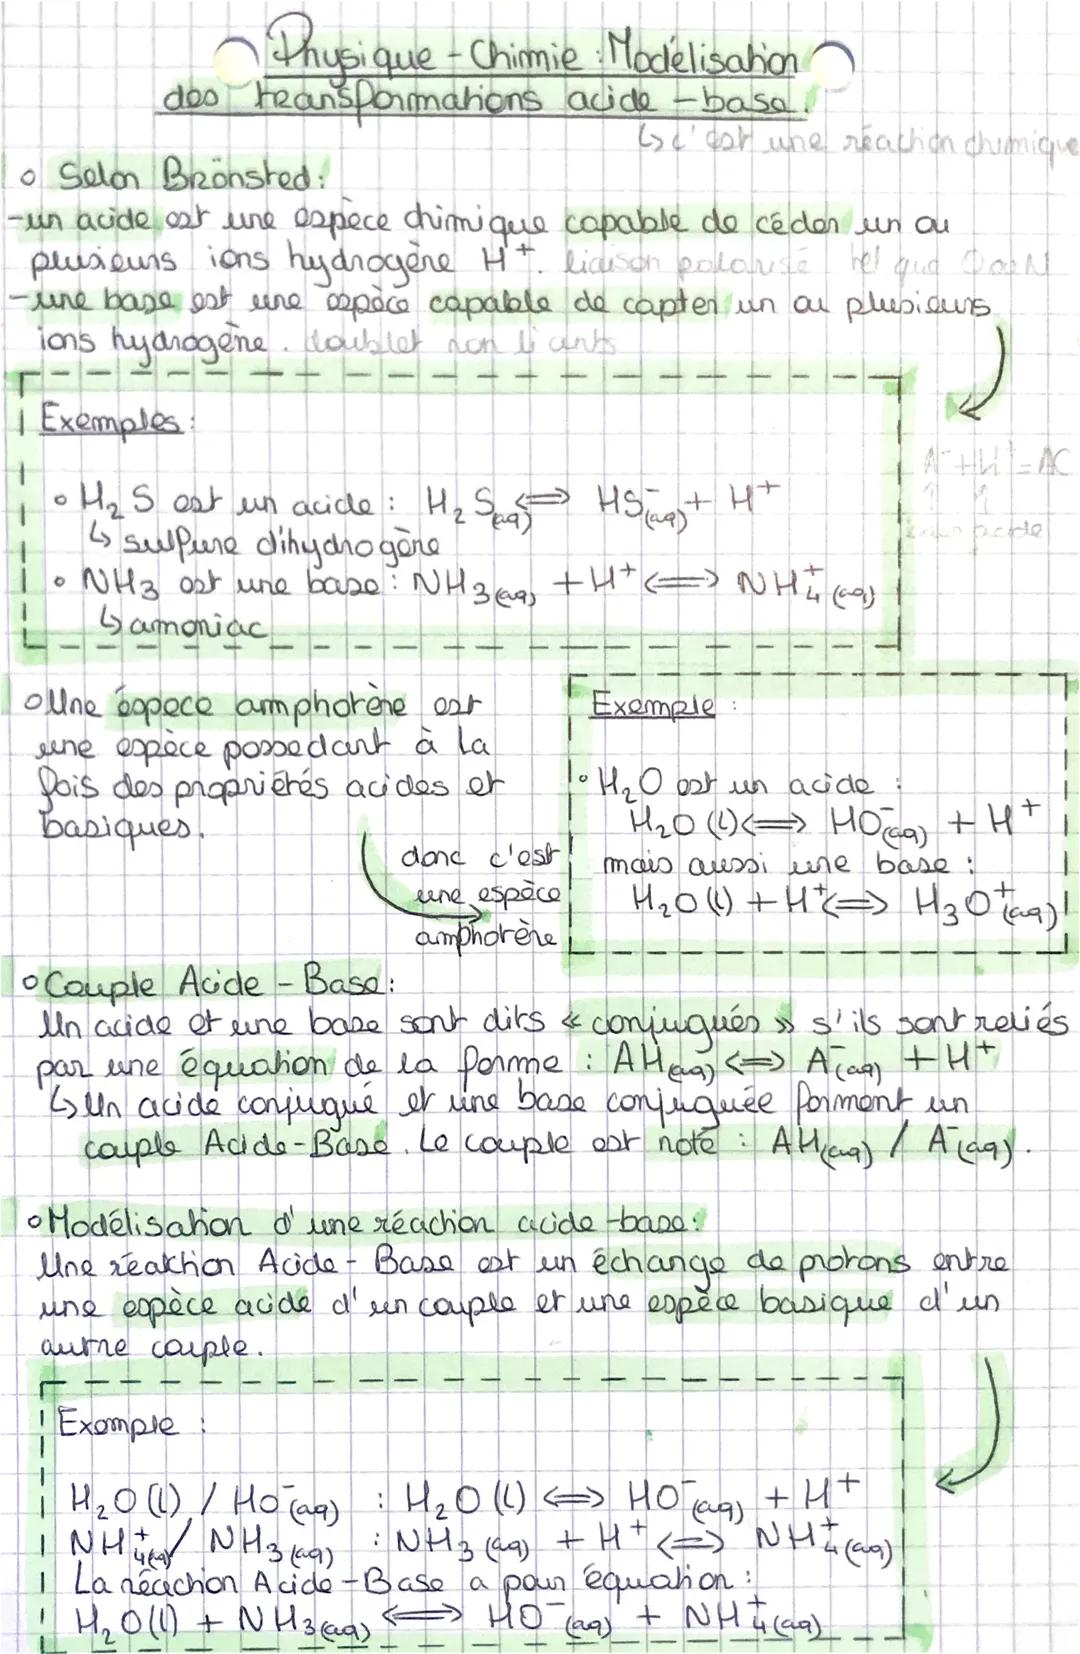 Physique - Chimie : Modélisation
des transformations acide - base.
↳ c'est une réaction chimique
o Selon Brönsted :
- un acide est une espèce chimique capable de céder un ou
plusieurs ions hydrogène H⁺. liaison polarisé tel que O ou N
- une base est une espèce capable de capter un ou plusieurs
ions hydrogène. doublet non liants
Exemples :
A⁻ + H⁺ = AC
o H₂S est un acide : H₂S(aq) ⇔ HS⁻(aq) + H⁺
↳ sulfure dihydrogène
o NH3 est une base : NH3(aq) + H⁺ ⇔ NH₄⁺(aq)
↳ amoniac
o Une éspece amphotère est
une espèce possedant à la
fois des propriétés acides et
basiques.
donc c'est
une espèce
amphotère
Exemple :
o H₂O est un acide :
H₂O (l) ⇔ HO⁻(aq) + H⁺
mais aussi une base :
H₂O (l) + H⁺ ⇔ H₃O⁺(aq)
o Couple Acide - Base :
Un acide et une base sont dits « conjugués » s'ils sont reliés
par une équation de la forme : AH(aq) ⇔ A⁻(aq) + H⁺
↳ Un acide conjugué et une base conjuguée forment un
couple Acide-Base. Le couple est noté : AH(aq) / A⁻(aq).
o Modélisation d'une réaction acide-base :
Une réaktion Acide - Base est un échange de protons entre
une espèce acide d'un couple et une espèce basique d'un
autre couple.
Exemple :
H₂O (l) / HO⁻(aq) : H₂O (l) ⇔ HO⁻(aq) + H⁺
NH₄⁺(aq) / NH₃(aq) : NH₃(aq) + H⁺ ⇔ NH₄⁺(aq)
La réaction Acide-Base a pour équation :
H₂O(l) + NH₃(aq) ⇔ HO⁻(aq) + NH₄⁺(aq)